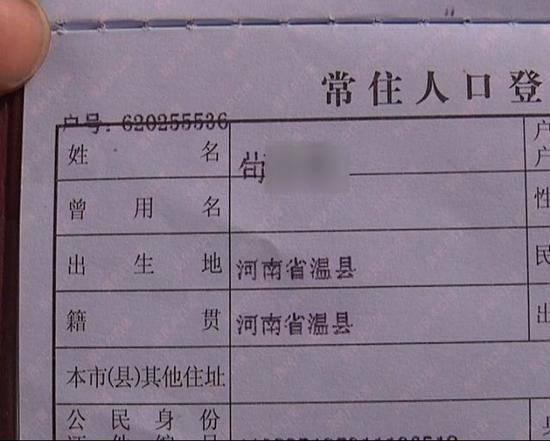 常住人口登
户号: 620255536
姓 名
户
户
曾 用 名
性
出 生 地 河南省温县
民
籍 贯 河南省温县
出
本市(县)其他住址
公 民 身 份